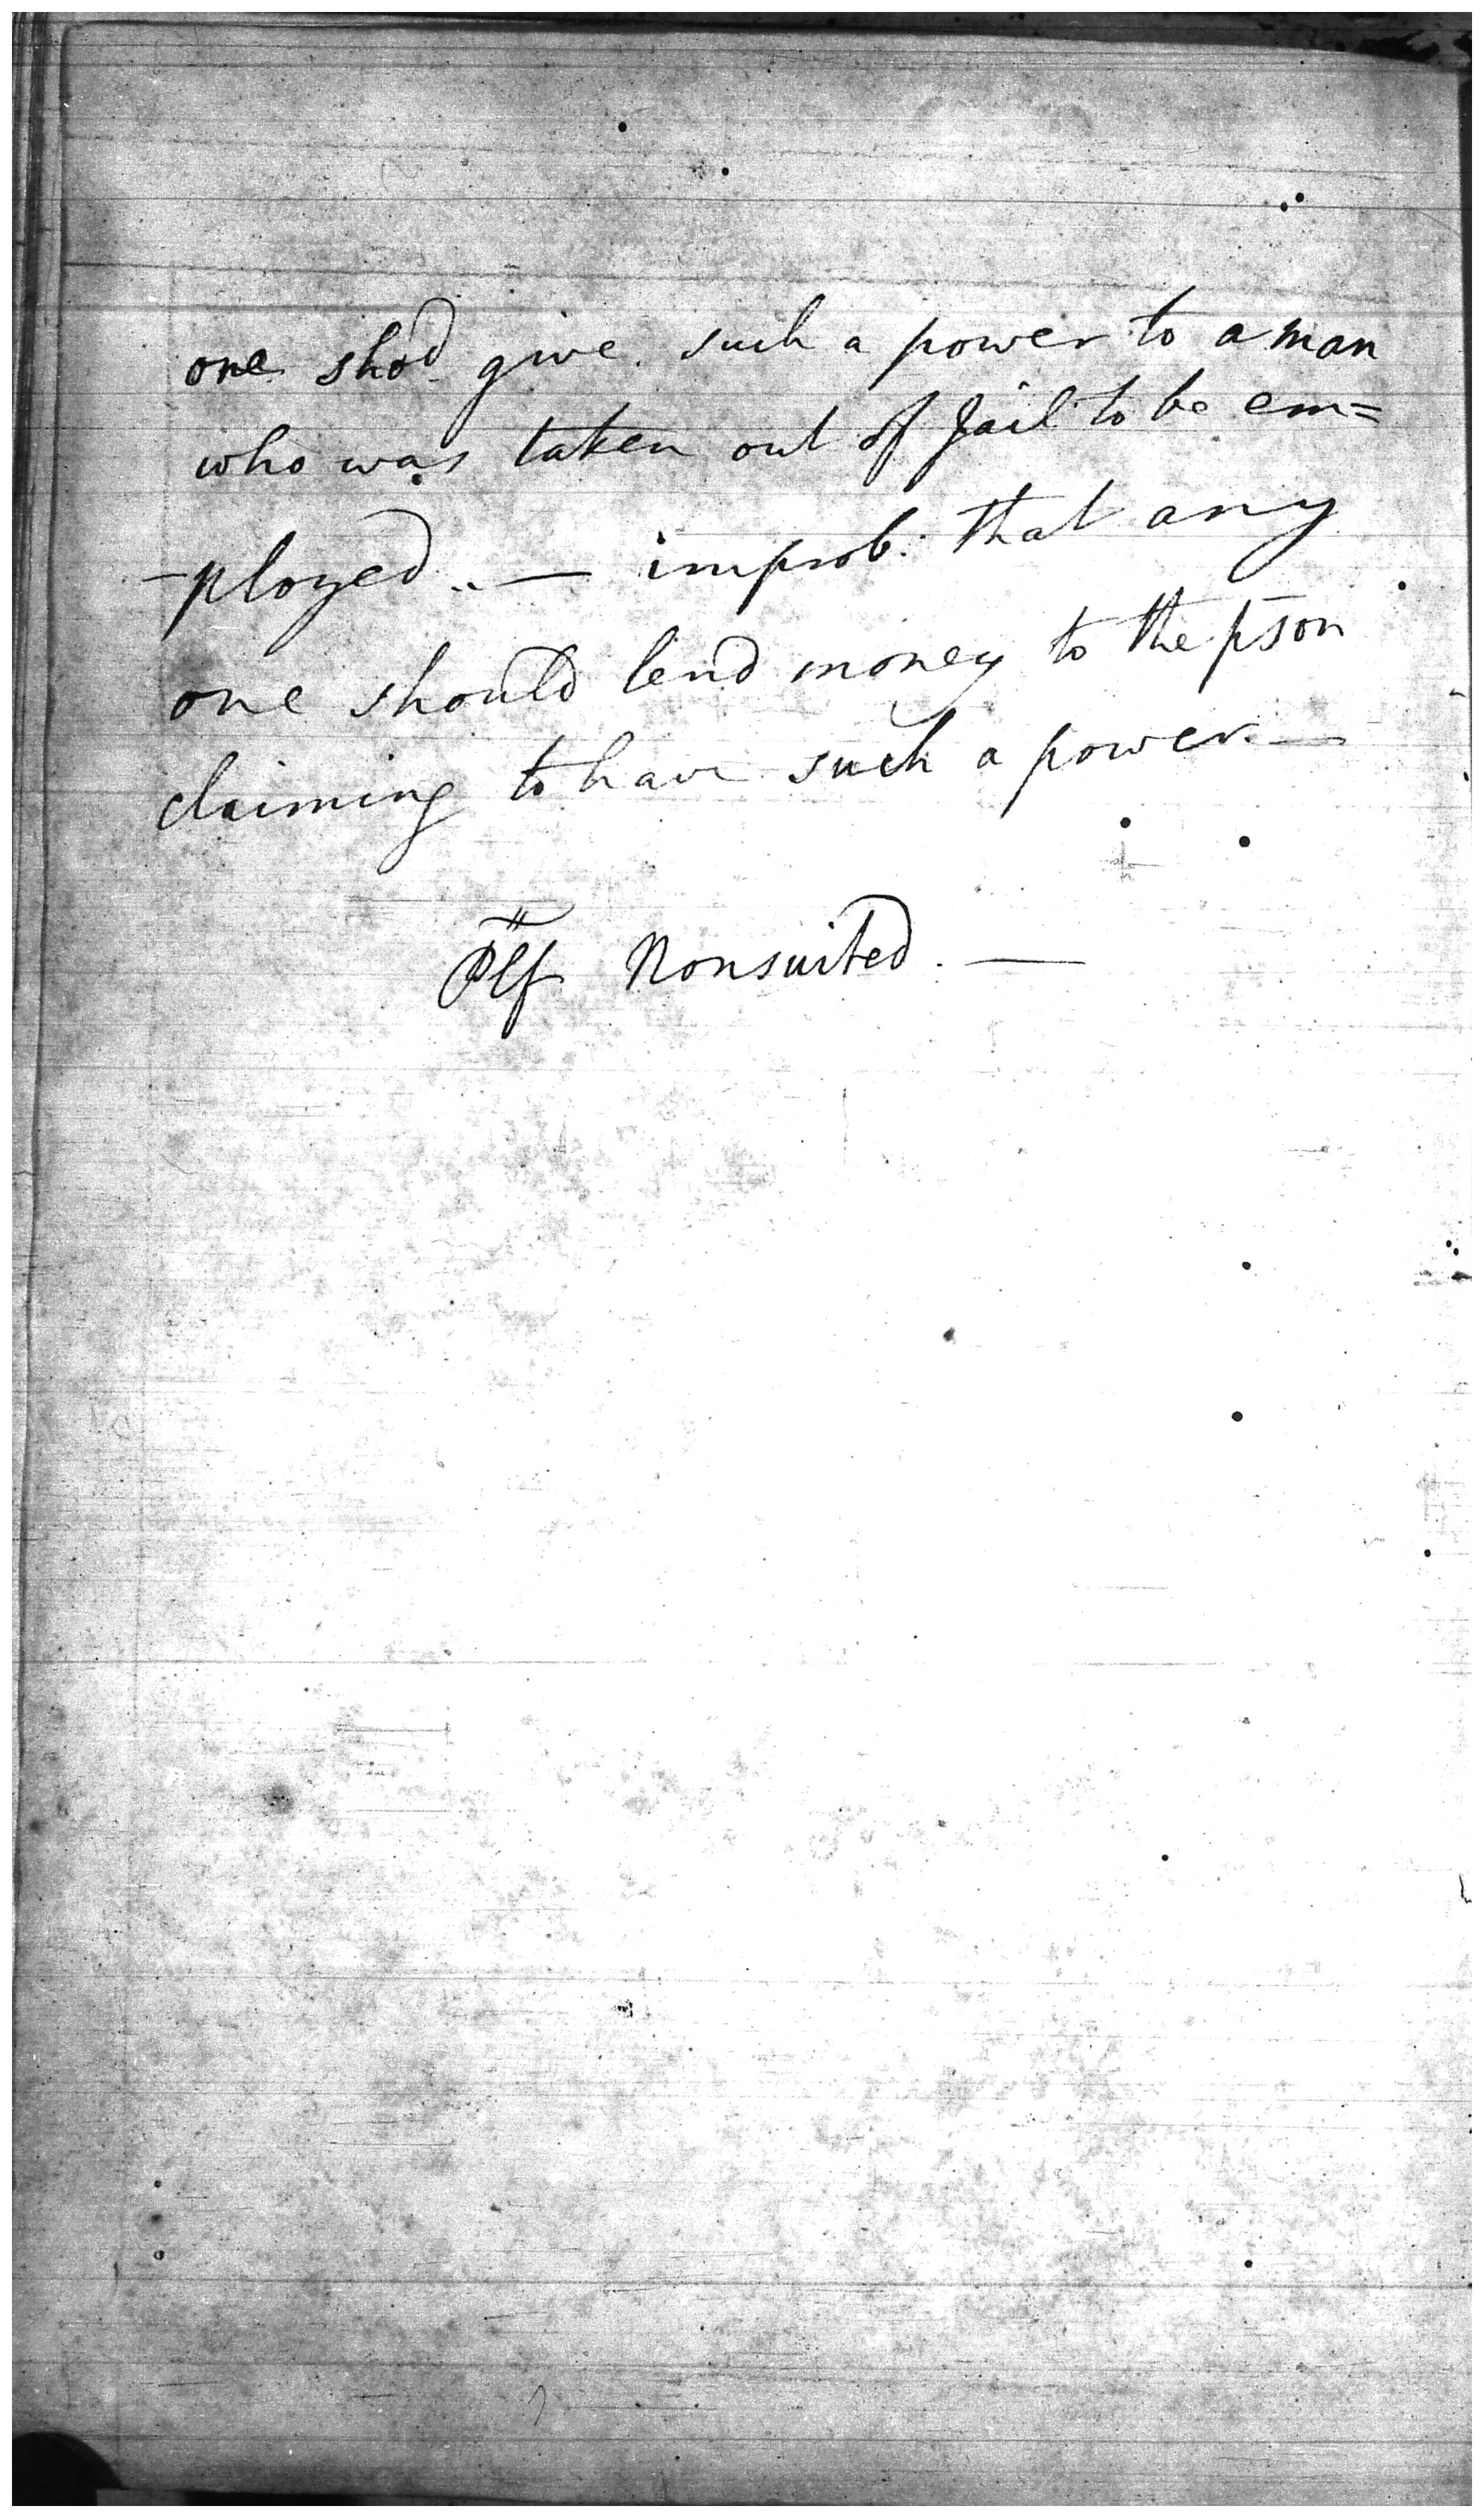 one shod give such a power to a man
who was taken out of Jail to be em=
-ployed .. — improb: that any
one should lend money to the p̄son
claiming to have such a power. —
Plf Nonsuited. —